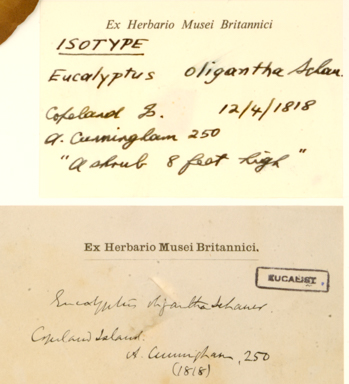 Ex Herbario Musei Britannici
ISOTYPE
Eucalyptus oligantha Schau.
Copeland Is. 12/4/1818
A. Cunningham 250
"A shrub 8 feet high"
Ex Herbario Musei Britannici.
EUCALIST.
Eucalyptus oligantha Schauer.
Copeland Island.
A. Cunningham, 250
(1818)